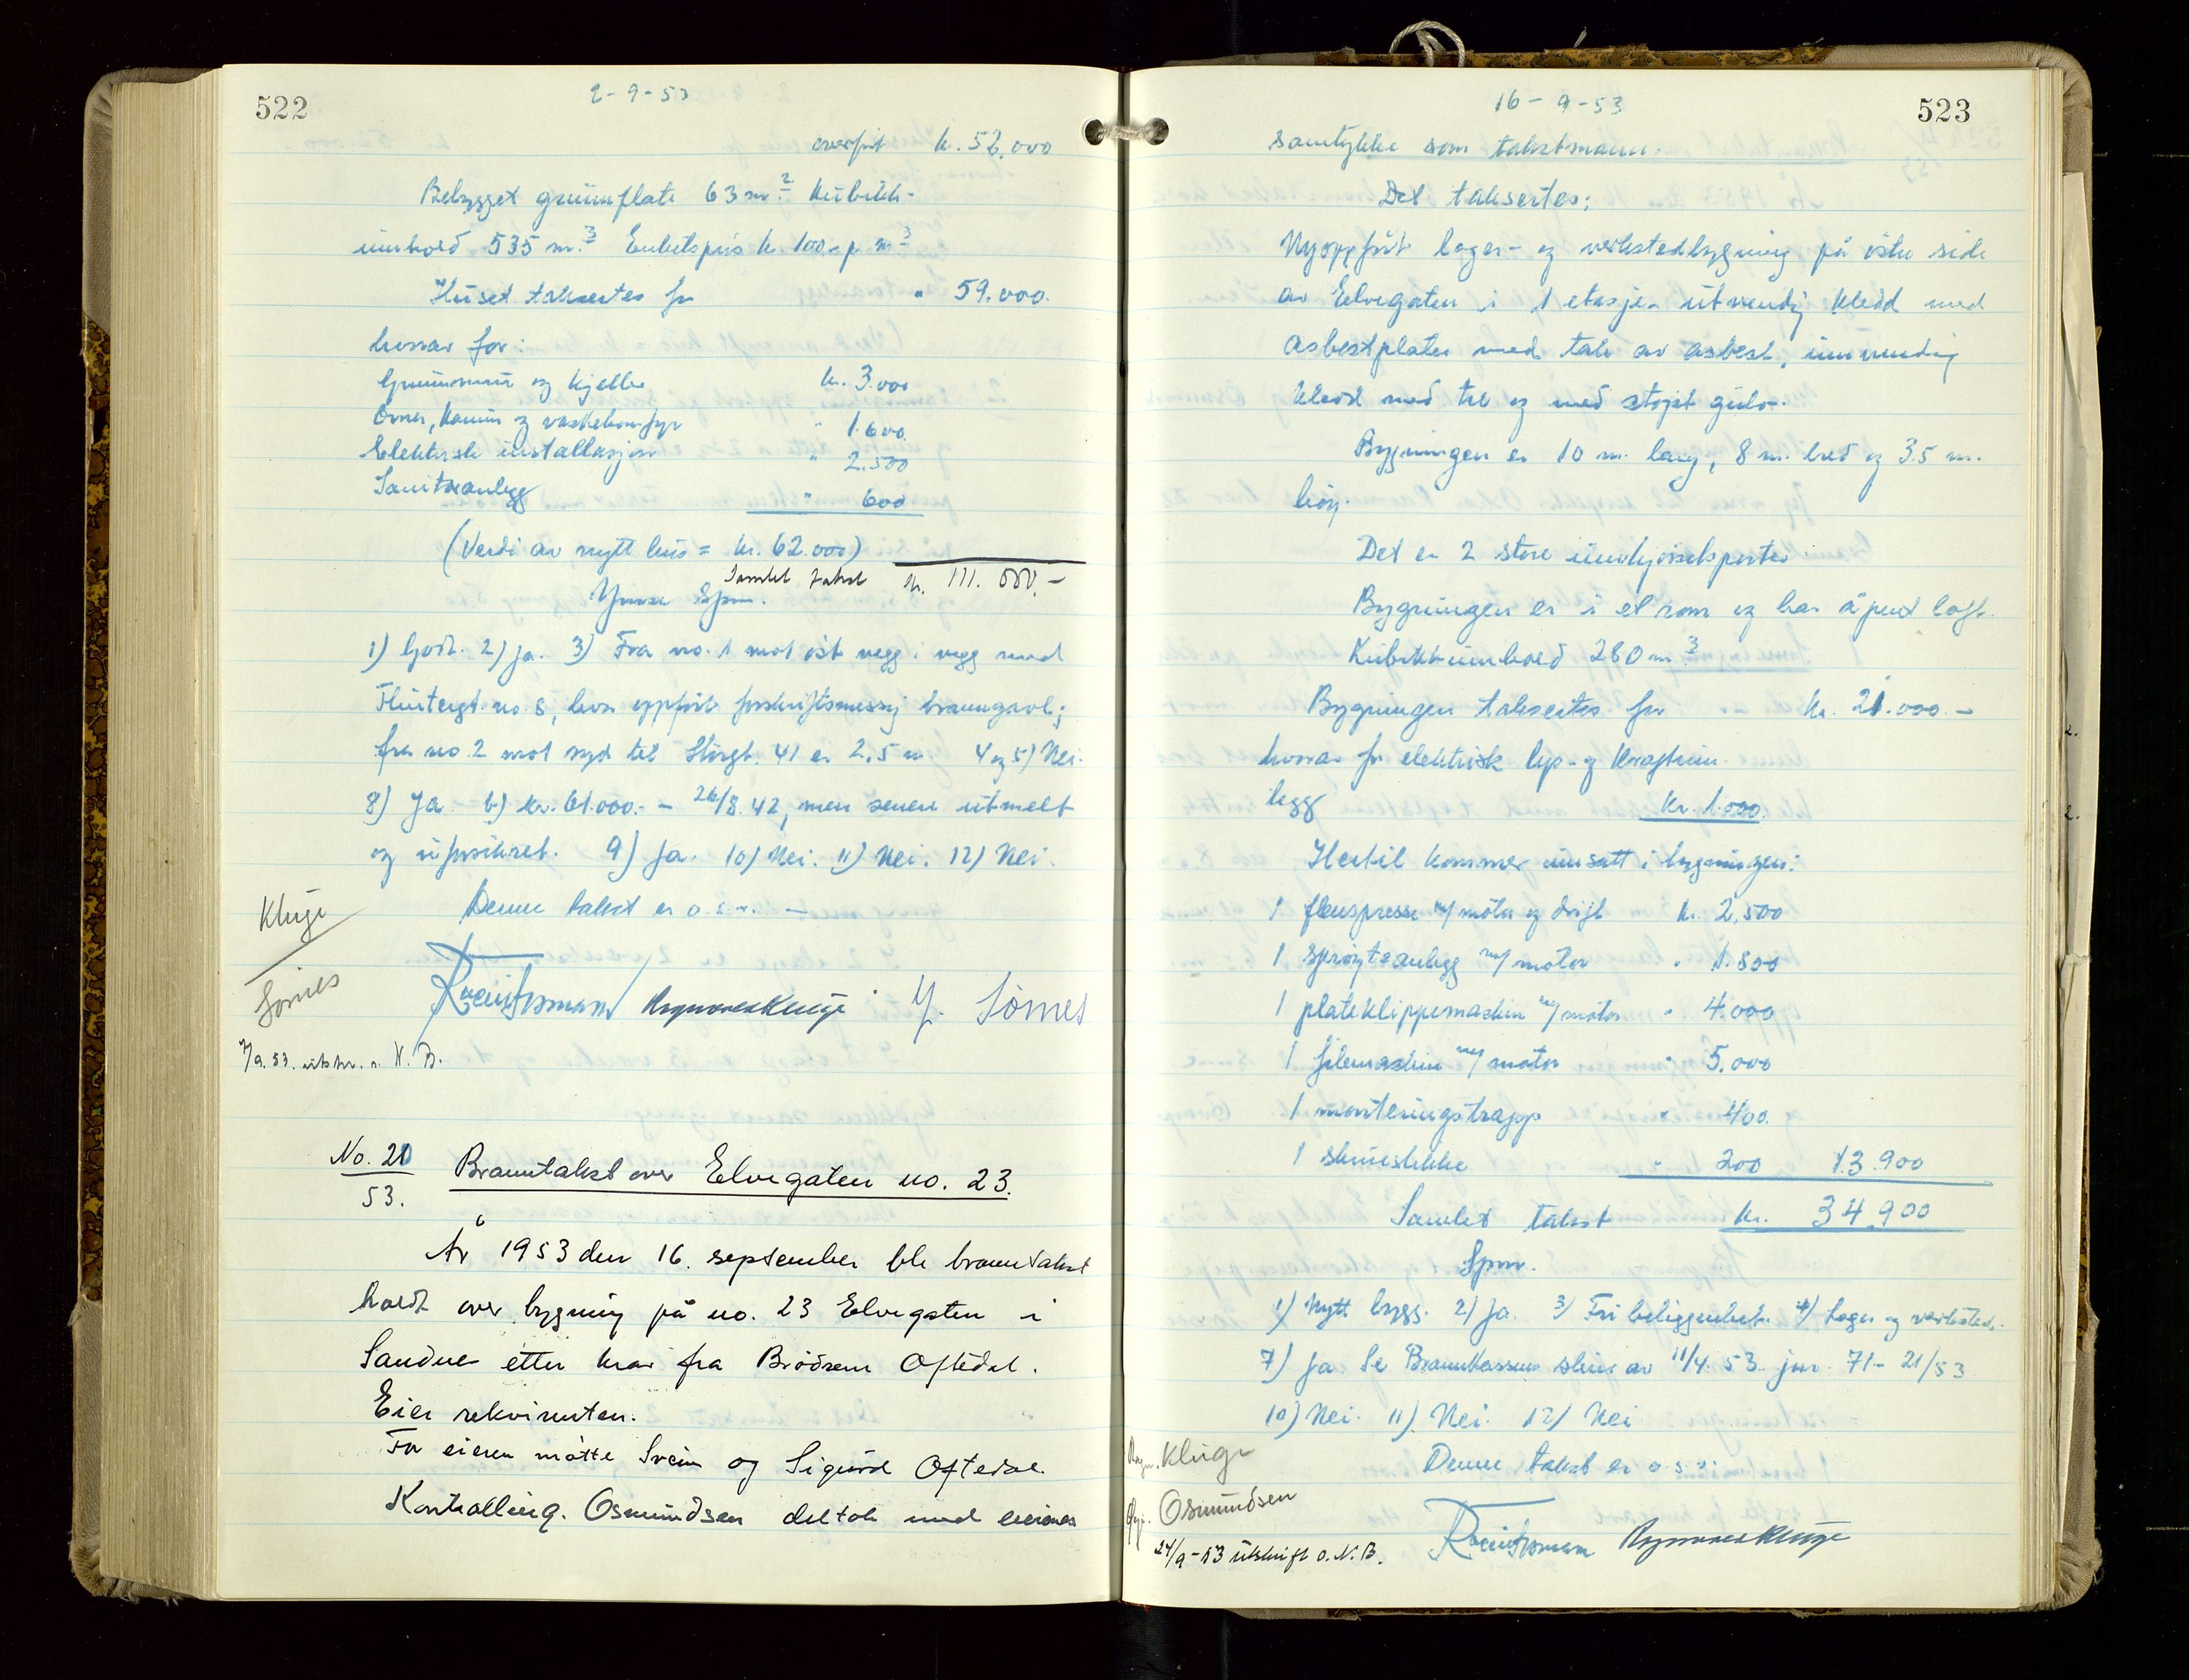 522
2-9-53
overført kr. 52.000
Bebygget grunnflate 63 m.² Kubikk-
innhold 535 m.³ Enhetspris kr. 100.- p. m³
Huset takseres for " 59.000.
hvorav for:
Grunnmur og kjeller kr. 3.000
Ovner, kamin og vaskekomfyr " 1.600.
Elektrisk installasjon " 2.500
Sanitæranlegg " 600
(Verdi av nytt hus = kr. 62.000)
Samlet takst kr. 111.000.-
Spm.
1) Godt. 2) Ja. 3) Fra no. 1 mot øst vegg i vegg med
Flintergt. no. 8, hvor oppført forskriftsmessig branngavl;
fra no. 2 mot syd til Storgt. 41 er 2,5 m. 4 og 5) Nei.
8) Ja. b) kr. 61.000.- - 26/8.42, men senere utmelt
og uforsikret. 9) Ja. 10) Nei. 11) Nei. 12) Nei.
Denne takst er o.s.v. -
Kluge
Sømes
Rag̃nvald Kluge Y. Sømes
7/9.53. utskr. s. N. B.
No. 20
53.
Branntakst over Elvegaten no. 23.
År 1953 den 16. september ble branntakst
holdt over bygning på no. 23 Elvegaten i
Sandnes etter krav fra Brødrene Oftedal.
Eier rekvirenten.
For eieren møtte Svein og Sigurd Oftedal.
Kontrolling. Osmundsen deltok med eierens
523
16-9-53
samtykke som takstmann.
Det takseres:
Nyoppført lager- og verkstedbygning på østre side
av Elvegaten i 1 etasje utvendig kledd med
asbestplater med tak av asbest, innvendig
kledd med tre og med støpt gulv.
Bygningen er 10 m. lang, 8 m. bred og 3.5 m.
høy.
Det er 2 store innkjørselsporter
Bygningen er i et rom og har åpent loft.
Kubikkinnhold 280 m.³
Bygningen takseres for kr. 21.000.-
hvorav for elektrisk lys- og kraftinn-
legg kr. 1.000.
Hertil kommer innsatt i bygningen:
1 flenspresse m/ motor og drift kr. 2.500
1 sprøyteanlegg m/ motor " 1.800
1 plateklippemaskin m/ motor " 4.000
1 filemaskin m/ motor " 5.000
1 monteringstrapp " 400.
1 skruestikke " 200 13.900
Samlet takst kr. 34.900
Spm.
1) Nytt bygg. 2) Ja. 3) Fri beliggenhet. 4) Lager og verksted.
7) Ja. Se Brannkassens skriv av 11/4.53. jnr. 71-21/53
10) Nei. 11) Nei. 12) Nei
Denne takst er o.s.v.
Ragn. Kluge
Osmundsen
Ragnvald Kluge
24/9-53 utskrift s. N. B.